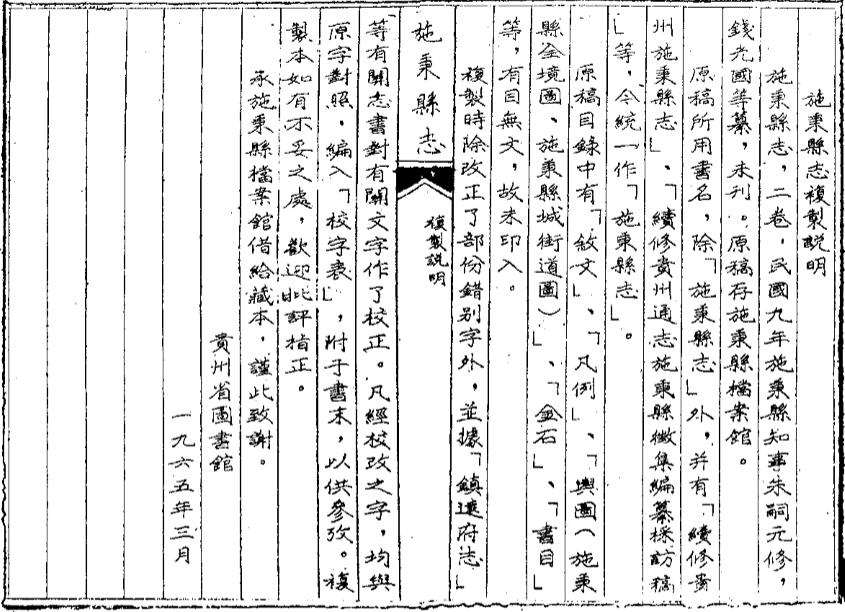 施秉縣志複製説明
施秉縣志，二卷，民國九年施秉縣知事朱嗣元修，
錢光國等纂，未刊。原稿存施秉縣檔案館。
原稿所用書名，除「施秉縣志」外，并有「續修貴
州施秉縣志」、「續修貴州通志施秉縣徵集編纂採訪稿
」等，今統一作「施秉縣志」。
原稿目錄中有「敘文」、「凡例」、「輿圖（施秉
縣全境圖、施秉縣城街道圖）」、「金石」、「書目」
等，有目無文，故未印入。
複製時除改正了部份錯别字外，並據「鎮遠府志」
施秉縣志
複製説明
等有關志書對有關文字作了校正。凡經校改之字，均與
原字對照，編入「校字表」，附于書末，以供參攷。複
製本如有不妥之處，歡迎批評指正。
承施秉縣檔案館借給藏本，謹此致謝。
貴州省圖書館
一九六五年三月